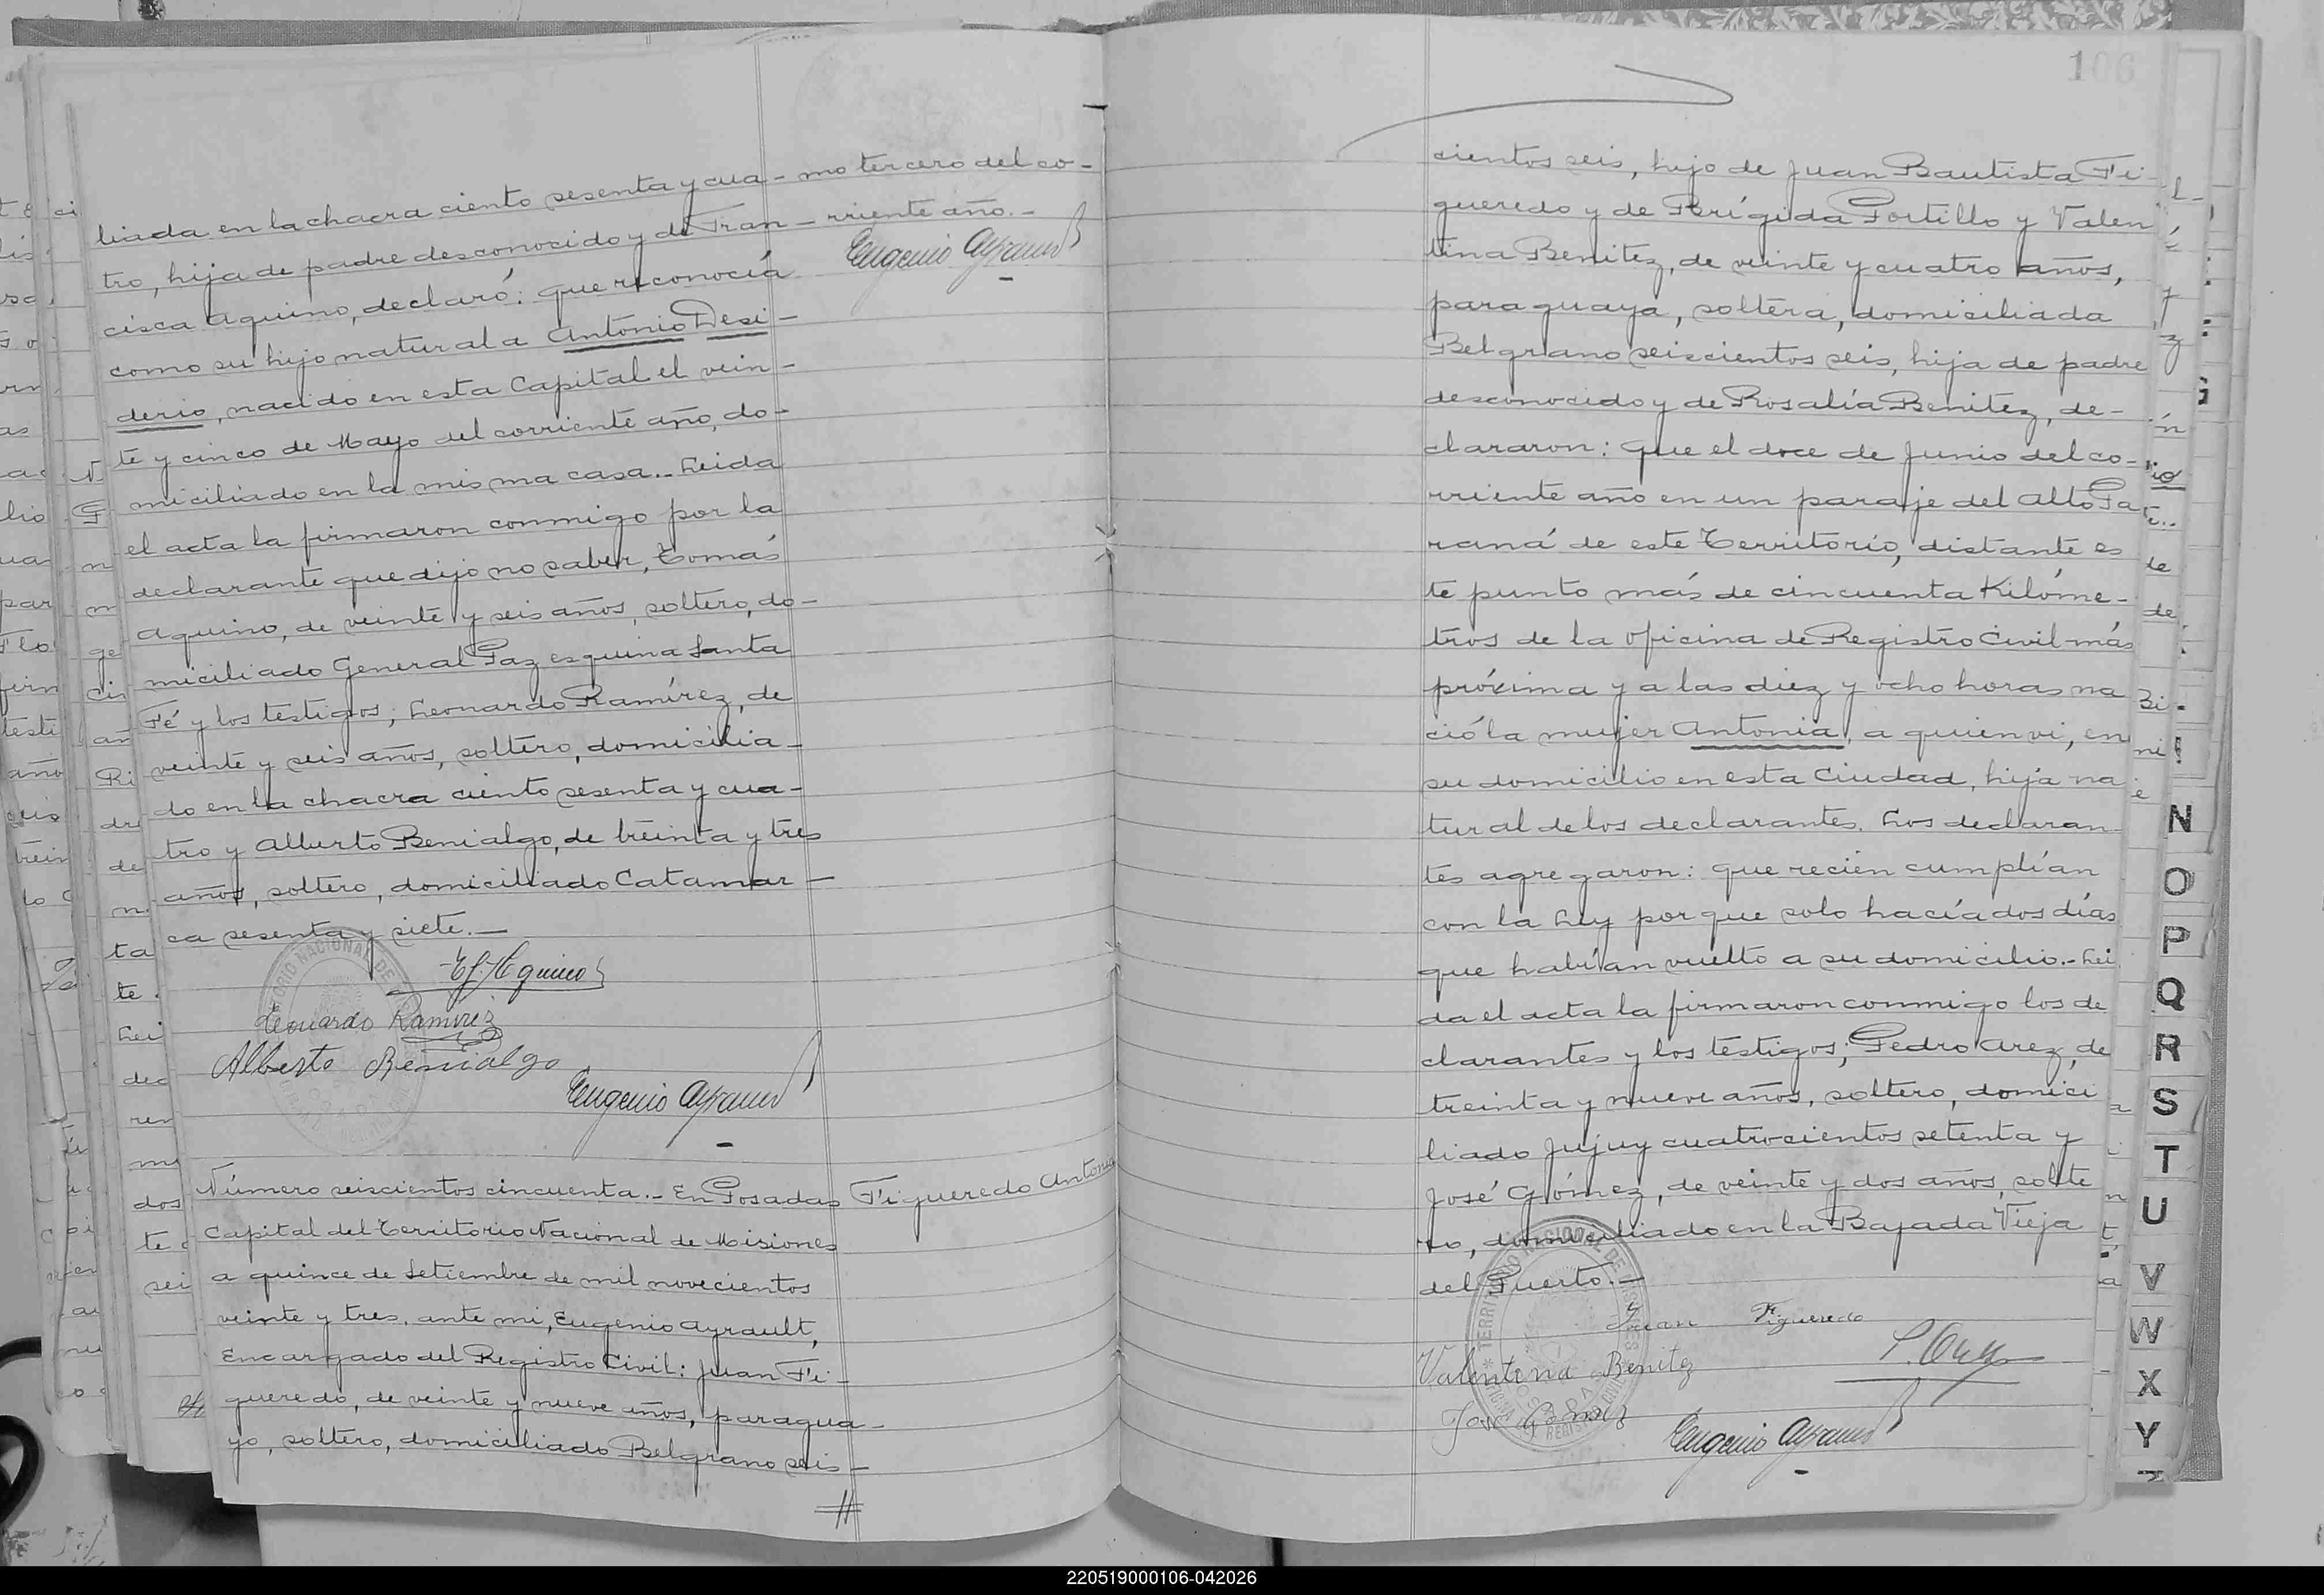 liada en la chacra ciento sesenta y cua-
tro, hija de padre desconocido y de Fran-
cisca Aquino, declaró: que reconocía
como su hijo natural a Antonio Desi-
derio, nacido en esta Capital el vein-
te y cinco de Mayo del corriente año, do-
miciliado en la misma casa.- Leida
el acta la firmaron conmigo por la
declarante que dijo no saber, Tomás
Aquino, de veinte y seis años, soltero, do-
miciliado General Paz esquina Santa
Fé y los testigos; Leonardo Ramírez, de
veinte y seis años, soltero, domicilia-
do en la chacra ciento sesenta y cua-
tro y Alberto Benialgo, de treinta y tres
años, soltero, domiciliado Catamar-
ca sesenta y siete.-
mo tercero del co-
rriente año.-
Eugenio Ayrault
Aquino
Leonardo Ramirez
Alberto Benialgo
Eugenio Ayrault
Número seiscientos cincuenta.- En Posadas
Figueredo Antonia
Capital del Territorio Nacional de Misiones
a quince de Setiembre de mil novecientos
veinte y tres, ante mi, Eugenio Ayrault,
Encargado del Registro Civil: Juan Fi-
gueredo, de veinte y nueve años, paragua-
yo, soltero, domiciliado Belgrano seis-
106
cientos seis, hijo de Juan Bautista Fi-
gueredo y de Brígida Portillo y Valen
tina Benitez, de veinte y cuatro años,
paraguaya, soltera, domiciliada
Belgrano seiscientos seis, hija de padre
desconocido y de Rosalía Benitez, de-
clararon: que el doce de Junio del co-
rriente año en un paraje del Alto Pa
raná de este Territorio, distante es
te punto más de cincuenta Kilóme-
tros de la oficina de Registro Civil más
próxima y a las diez y ocho horas na
ció la mujer Antonia, a quien vi, en
su domicilio en esta Ciudad, hija na
tural de los declarantes. Los declaran
tes agregaron: que recién cumplían
con la Ley porque solo hacía dos días
que habían vuelto a su domicilio.- Lei
da el acta la firmaron conmigo los de
clarantes y los testigos; Pedro Arez, de
treinta y nueve años, soltero, domici
liado Jujuy cuatrocientos setenta y
José Gómez, de veinte y dos años, solte
ro, domiciliado en la Bajada Vieja
del Puerto.-
Juan Figueredo
Valentina Benitez
José Gómez
Eugenio Ayrault
N
O
P
Q
R
S
T
U
V
W
X
Y
Z
220519000106-042026